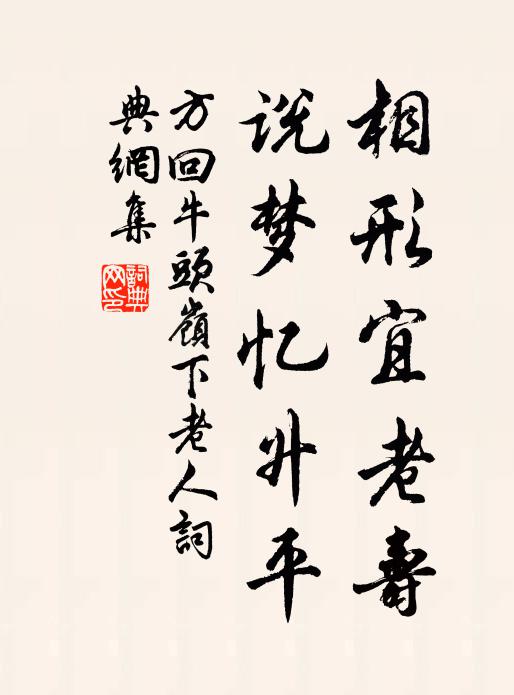 相形宜老壽
说梦忆升平
方回牛頭嶺下老人詞
典網集
詞典网印